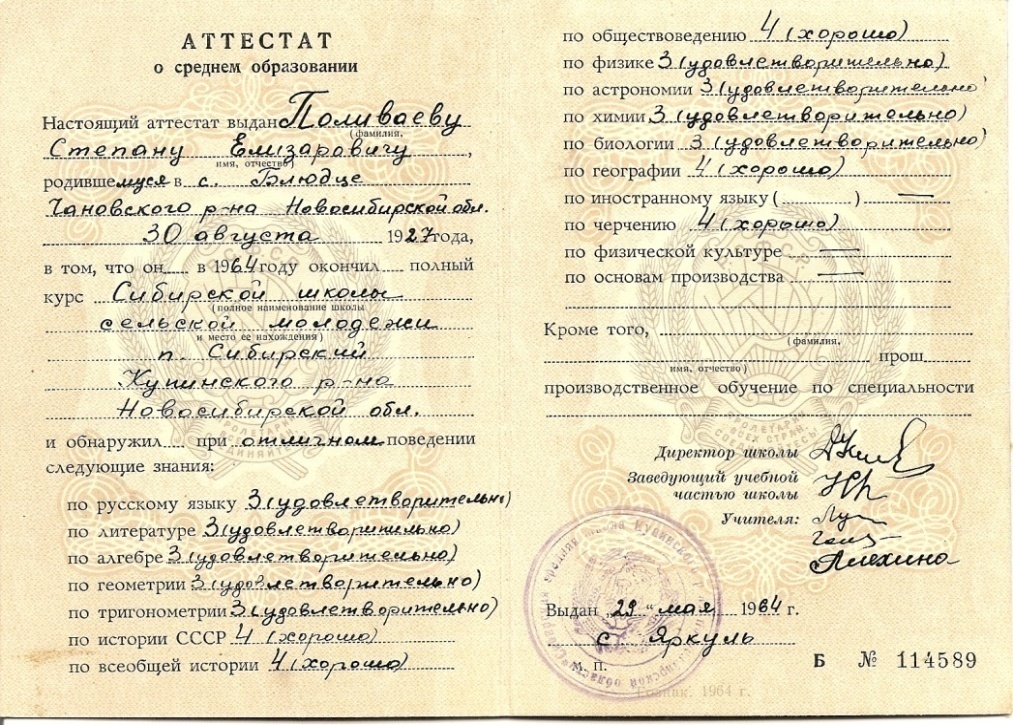 АТТЕСТАТ
о среднем образовании
Настоящий аттестат выдан Поливаеву
(фамилия,
Степану Елизаровичу,
имя, отчество)
родившемуся в с. Блюдце
Чановского р-на Новосибирской обл.
30 августа 1927 года,
в том, что он в 1964 году окончил полный
курс Сибирской школы
(полное наименование школы
сельской молодежи
и место ее нахождения)
п. Сибирский
Купинского р-на
Новосибирской обл.
и обнаружил при отличном поведении
следующие знания:
по русскому языку 3 (удовлетворительно)
по литературе 3 (удовлетворительно)
по алгебре 3 (удовлетворительно)
по геометрии 3 (удовлетворительно)
по тригонометрии 3 (удовлетворительно)
по истории СССР 4 (хорошо)
по всеобщей истории 4 (хорошо)
по обществоведению 4 (хорошо)
по физике 3 (удовлетворительно)
по астрономии 3 (удовлетворительно)
по химии 3 (удовлетворительно)
по биологии 3 (удовлетворительно)
по географии 4 (хорошо)
по иностранному языку ( ) —
по черчению 4 (хорошо)
по физической культуре —
по основам производства —
Кроме того,
(фамилия,
прош
имя, отчество)
производственное обучение по специальности
Директор школы
Заведующий учебной
частью школы
Учителя:
Алехина
Выдан „29" мая 1964 г.
с. Яркуль
М. П.
Б № 114589
Гознак. 1964 г.